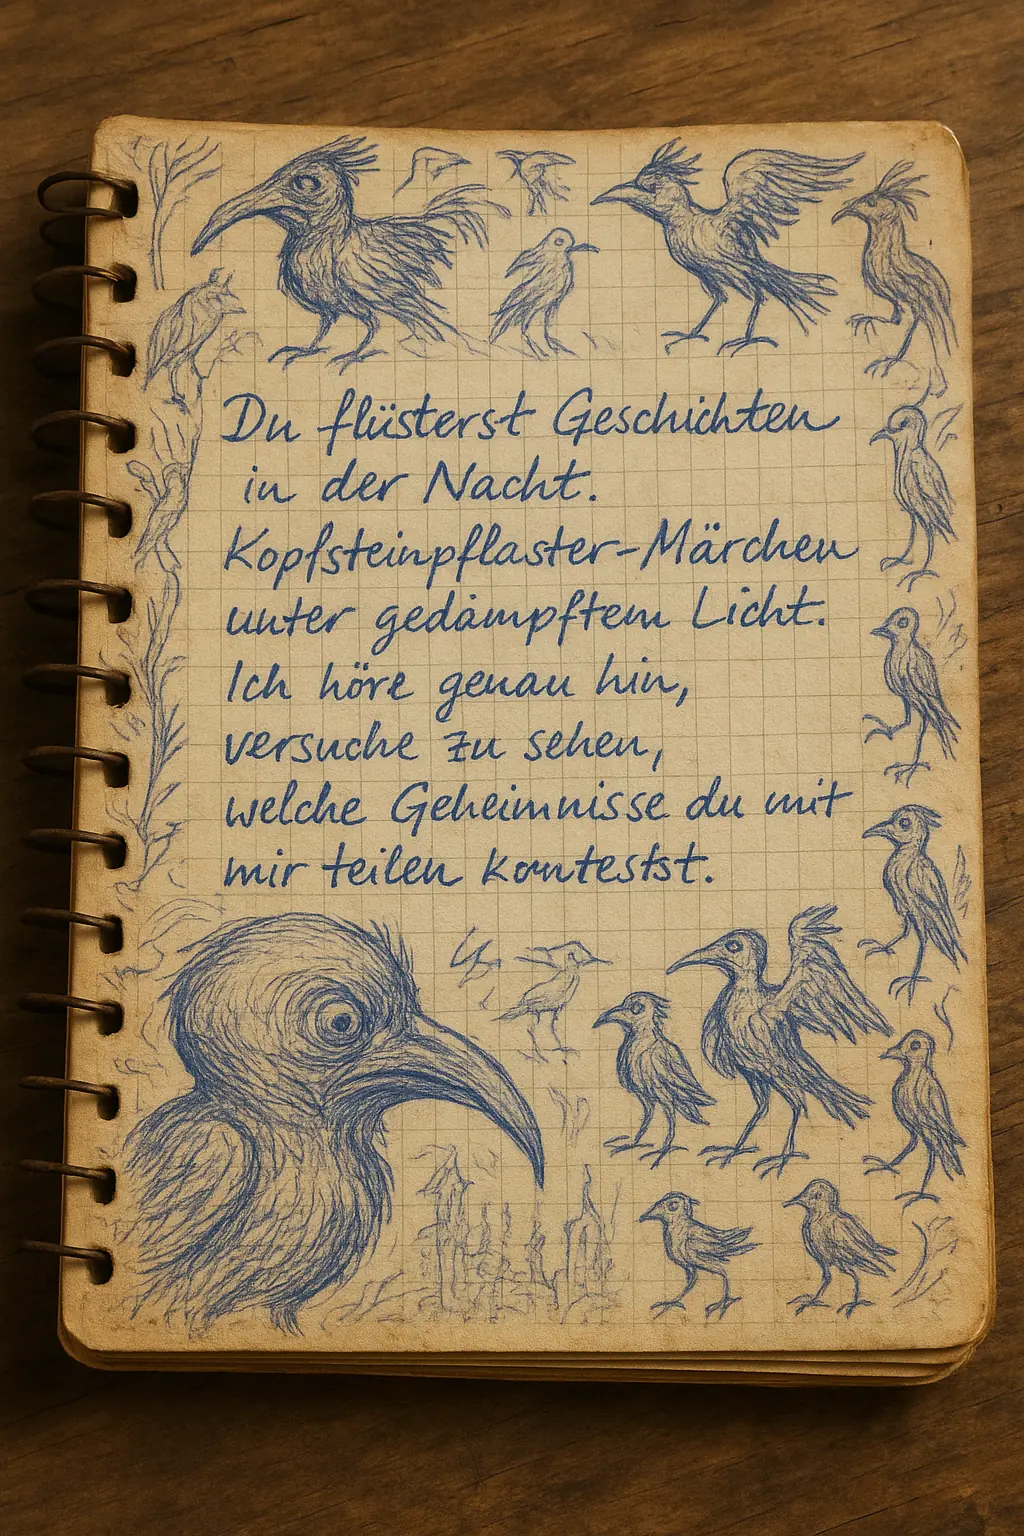 Du flüsterst Geschichten
in der Nacht.
Kopfsteinpflaster-Märchen
unter gedämpftem Licht.
Ich höre genau hin,
versuche zu sehen,
welche Geheimnisse du mit
mir teilen